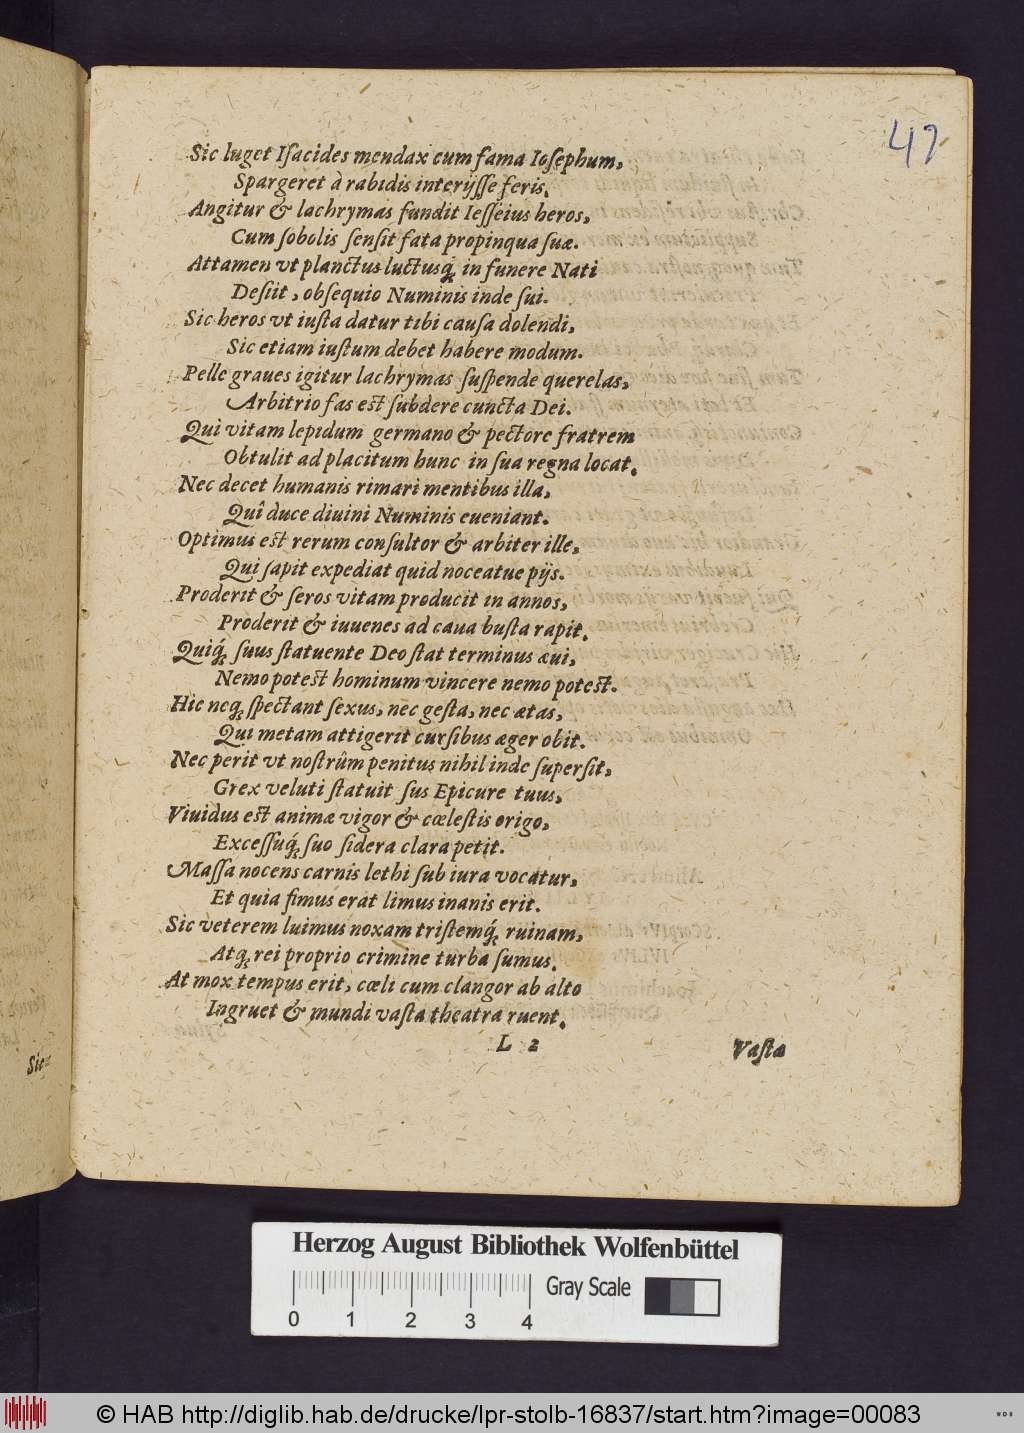 47
Sic luget Isacides mendax cum fama Iosephum,
Spargeret à rabidis interijſſe feris.
Angitur & lachrymas fundit Ieſſeius heros,
Cum ſobolis ſenſit fata propinqua ſuæ.
Attamen vt planctus luctusq́; in funere Nati
Deſiit, obſequio Numinis inde ſui.
Sic heros vt iuſta datur tibi cauſa dolendi,
Sic etiam iuſtum debet habere modum.
Pelle graues igitur lachrymas ſuſpende querelas,
Arbitrio fas eſt ſubdere cuncta Dei.
Qui vitam lepidum germano & pectore fratrem
Obtulit ad placitum hunc in ſua regna locat.
Nec decet humanis rimari mentibus illa,
Quî duce diuini Numinis eueniant.
Optimus eſt rerum conſultor & arbiter ille,
Qui ſapit expediat quid noceatue pijs.
Proderit & ſeros vitam producit in annos,
Proderit & iuuenes ad caua buſta rapit.
Quiq́; ſuus ſtatuente Deo ſtat terminus æui,
Nemo poteſt hominum vincere nemo poteſt.
Hic neq; ſpectant ſexus, nec geſta, nec ætas,
Qui metam attigerit curſibus æger obit.
Nec perit vt noſtrûm penitus nihil inde ſuperſit,
Grex veluti ſtatuit ſus Epicure tuus,
Viuidus eſt animæ vigor & cœleſtis origo,
Exceſſuq́; ſuo ſidera clara petit.
Maſſa nocens carnis lethi ſub iura vocatur,
Et quia fimus erat limus inanis erit.
Sic veterem luimus noxam triſtemq́; ruinam,
Atq; rei proprio crimine turba ſumus.
At mox tempus erit, cœli cum clangor ab alto
Ingruet & mundi vaſta theatra ruent.
L 2 Vaſta
Sic
Herzog August Bibliothek Wolfenbüttel
Gray Scale
0 1 2 3 4
© HAB http://diglib.hab.de/drucke/lpr-stolb-16837/start.htm?image=00083